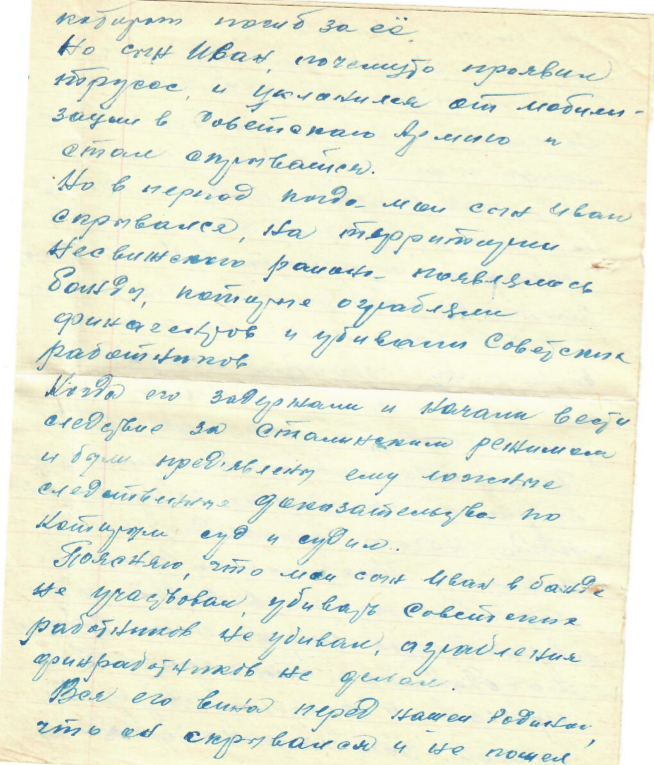 которот погиб за её.
Но сын Иван, почемуто проявил
трусос, и уклонился от мобили-
зации в Советскаю Армию и
стал скрыватся.
Но в период когда мои сын Иван
скрывался, на территории
Несвижского района появялись
банды, которые ограбляли
финагентров и убивали Советских
работников
Когда его задержали и начали вести
следствие за Сталинским режимом
и были предявлены ему ложные
следственные доказательства по
которым суд и судил.
Поясняю, что мои сын Иван в банде
не участвовал, убивать Советских
работников не убивал, аграбления
финработников не делал.
Вся его вина перед нашеи Родинои,
что он скрывался и не пошел